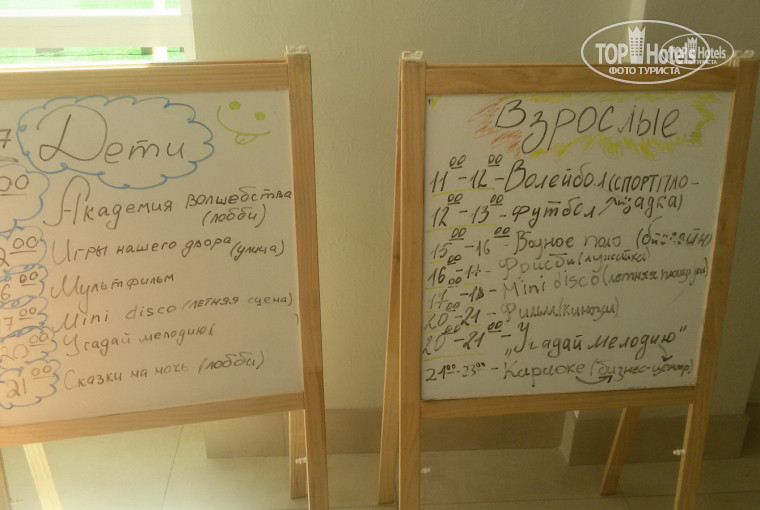 Дети
00
Академия волшебства
(лобби)
00 Игры нашего двора (улица)
00 Мультфильм
00 Mini disco (летняя сцена)
00 Угадай мелодию!
21 00 Сказки на ночь (лобби)
Взрослые
11 00 - 12 00 - Волейбол (спортпло-
12 00 - 13 00 - Футбол щадка)
15 00 - 16 00 - Водное поло
16 00 - 17 - Фрисби
17 00 - 18 - Mini disco (летняя
20 00 - 21 - Фильм (кинозал)
20 00 - 21 00 - „Угадай мелодию"
21 00 - 23 00 - Караоке (бизнес-центр)
TOP Hotels
ФОТО ТУРИСТА